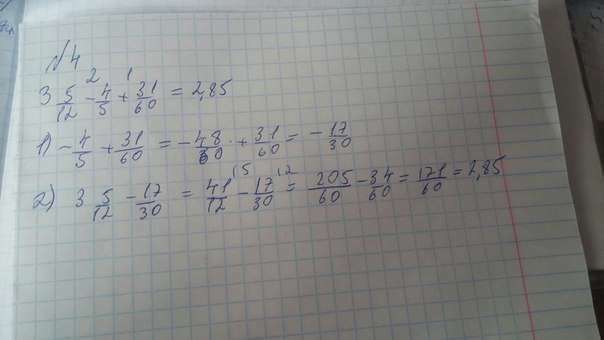 №4
2 1
3 5/12 - 4/5 + 31/60 = 2,85
1) - 4/5 + 31/60 = - 48/60 + 31/60 = - 17/30
2) 3 5/12 - 17/30 = 41/12 (5 - 17/30 (2 = 205/60 - 34/60 = 171/60 = 2,85